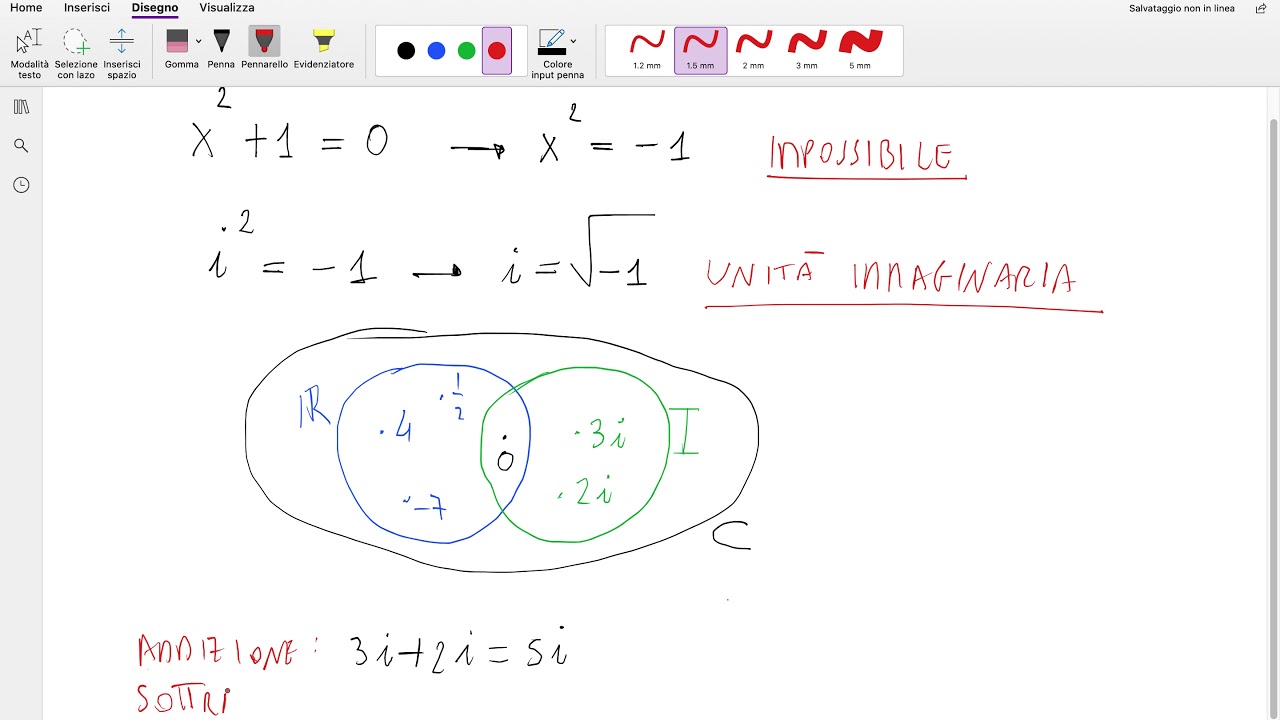 Home Inserisci Disegno Visualizza Salvataggio non in linea
Modalità testo Selezione con lazo Inserisci spazio Gomma Penna Pennarello Evidenziatore Colore input penna 1.2 mm 1.5 mm 2 mm 3 mm 5 mm
x² + 1 = 0 → x² = -1 IMPOSSIBILE
i² = -1 → i = √-1 UNITÀ IMMAGINARIA
ℝ · 4 · 1/2 · -7 · 0 · 3i · 2i I
C
ADDIZIONE: 3i+2i=5i
SOTTRI